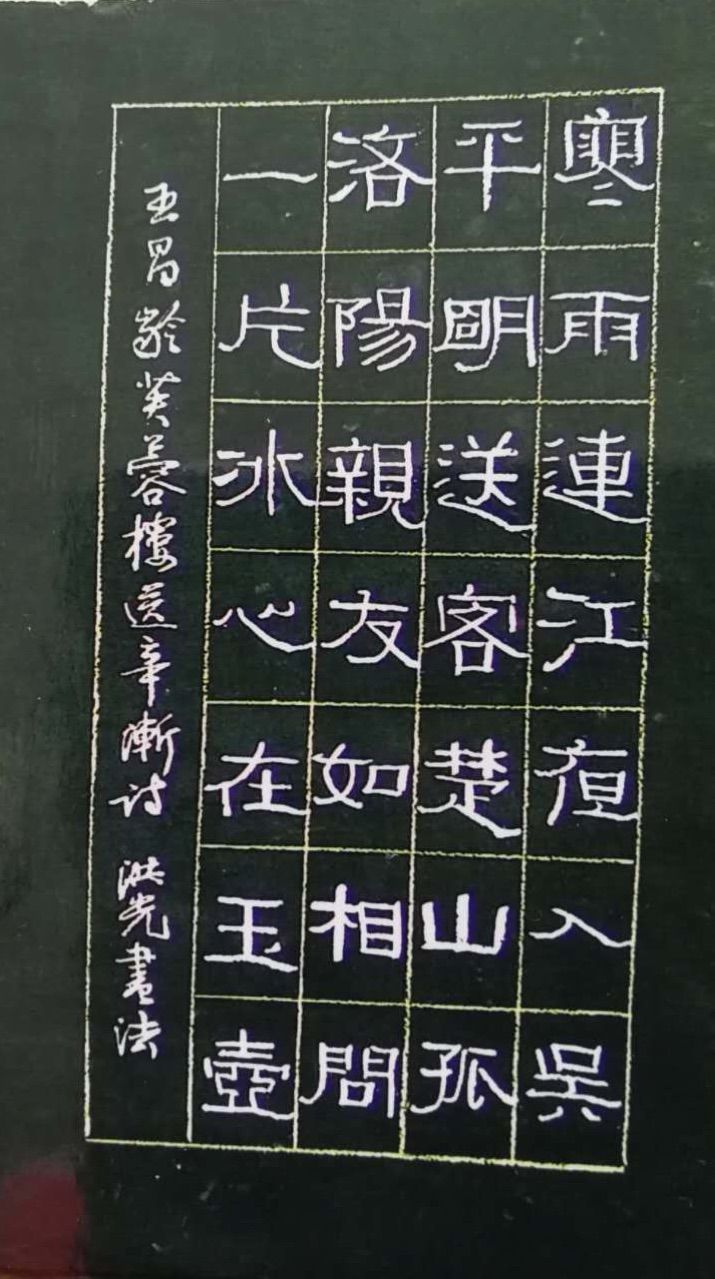 寒雨連江夜入吳
平明送客楚山孤
洛陽親友如相問
一片冰心在玉壺
王昌齡芙蓉樓送辛漸詩 洪光書法